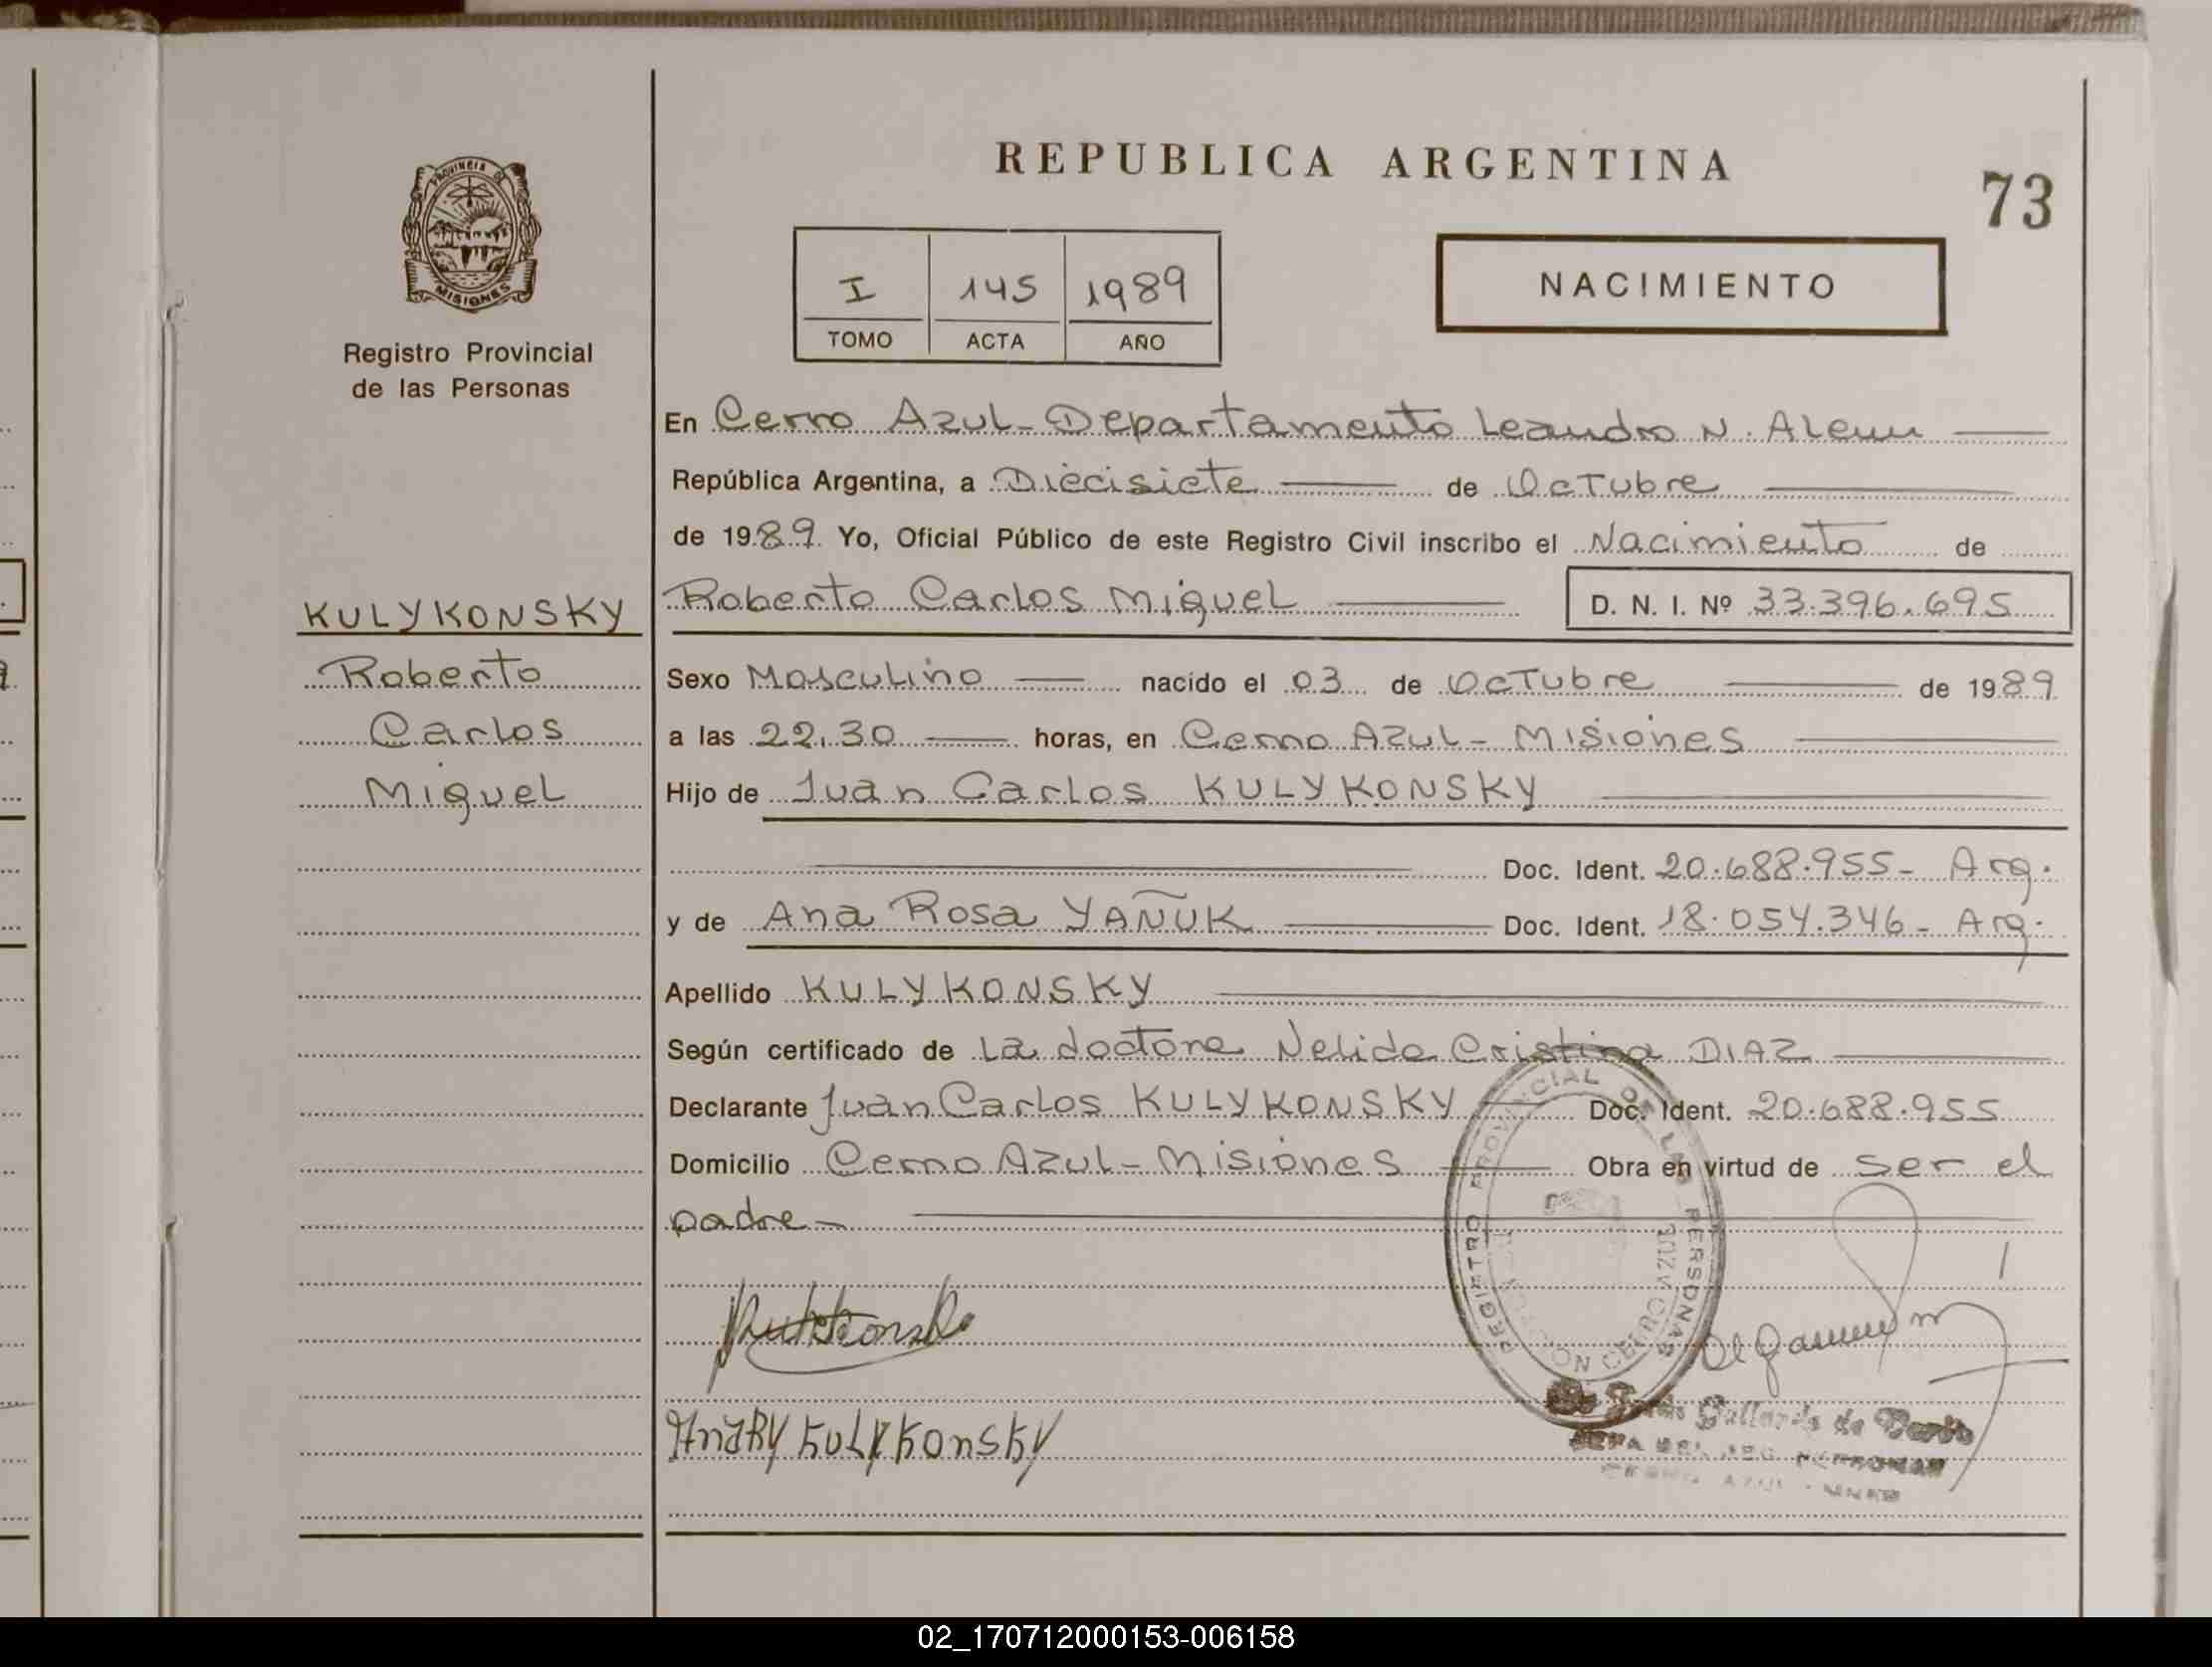 REPUBLICA ARGENTINA
73
PROVINCIA DE
MISIONES
Registro Provincial
de las Personas
I 145 1989
TOMO ACTA AÑO
NACIMIENTO
En Cerro Azul - Departamento Leandro N. Alem
República Argentina, a Diecisiete de Octubre
de 1989 Yo, Oficial Público de este Registro Civil inscribo el Nacimiento de
Roberto Carlos Miguel D. N. I. Nº 33.396.695
KULYKONSKY
Roberto
Carlos
Miguel
Sexo Masculino nacido el 03 de Octubre de 1989
a las 22,30 horas, en Cerro Azul - Misiones
Hijo de Juan Carlos KULYKONSKY
Doc. Ident. 20.688.955 - Arg.
y de Ana Rosa YAÑUK Doc. Ident. 18.054.346 - Arg.
Apellido KULYKONSKY
Según certificado de La doctora Nelida Cristina DIAZ
Declarante Juan Carlos KULYKONSKY Doc. Ident. 20.688.955
Domicilio Cerro Azul - Misiones Obra en virtud de ser el
padre -
REGISTRO PROVINCIAL DE LAS PERSONAS
CERRO AZUL
KULYKONSKY
02_170712000153-006158